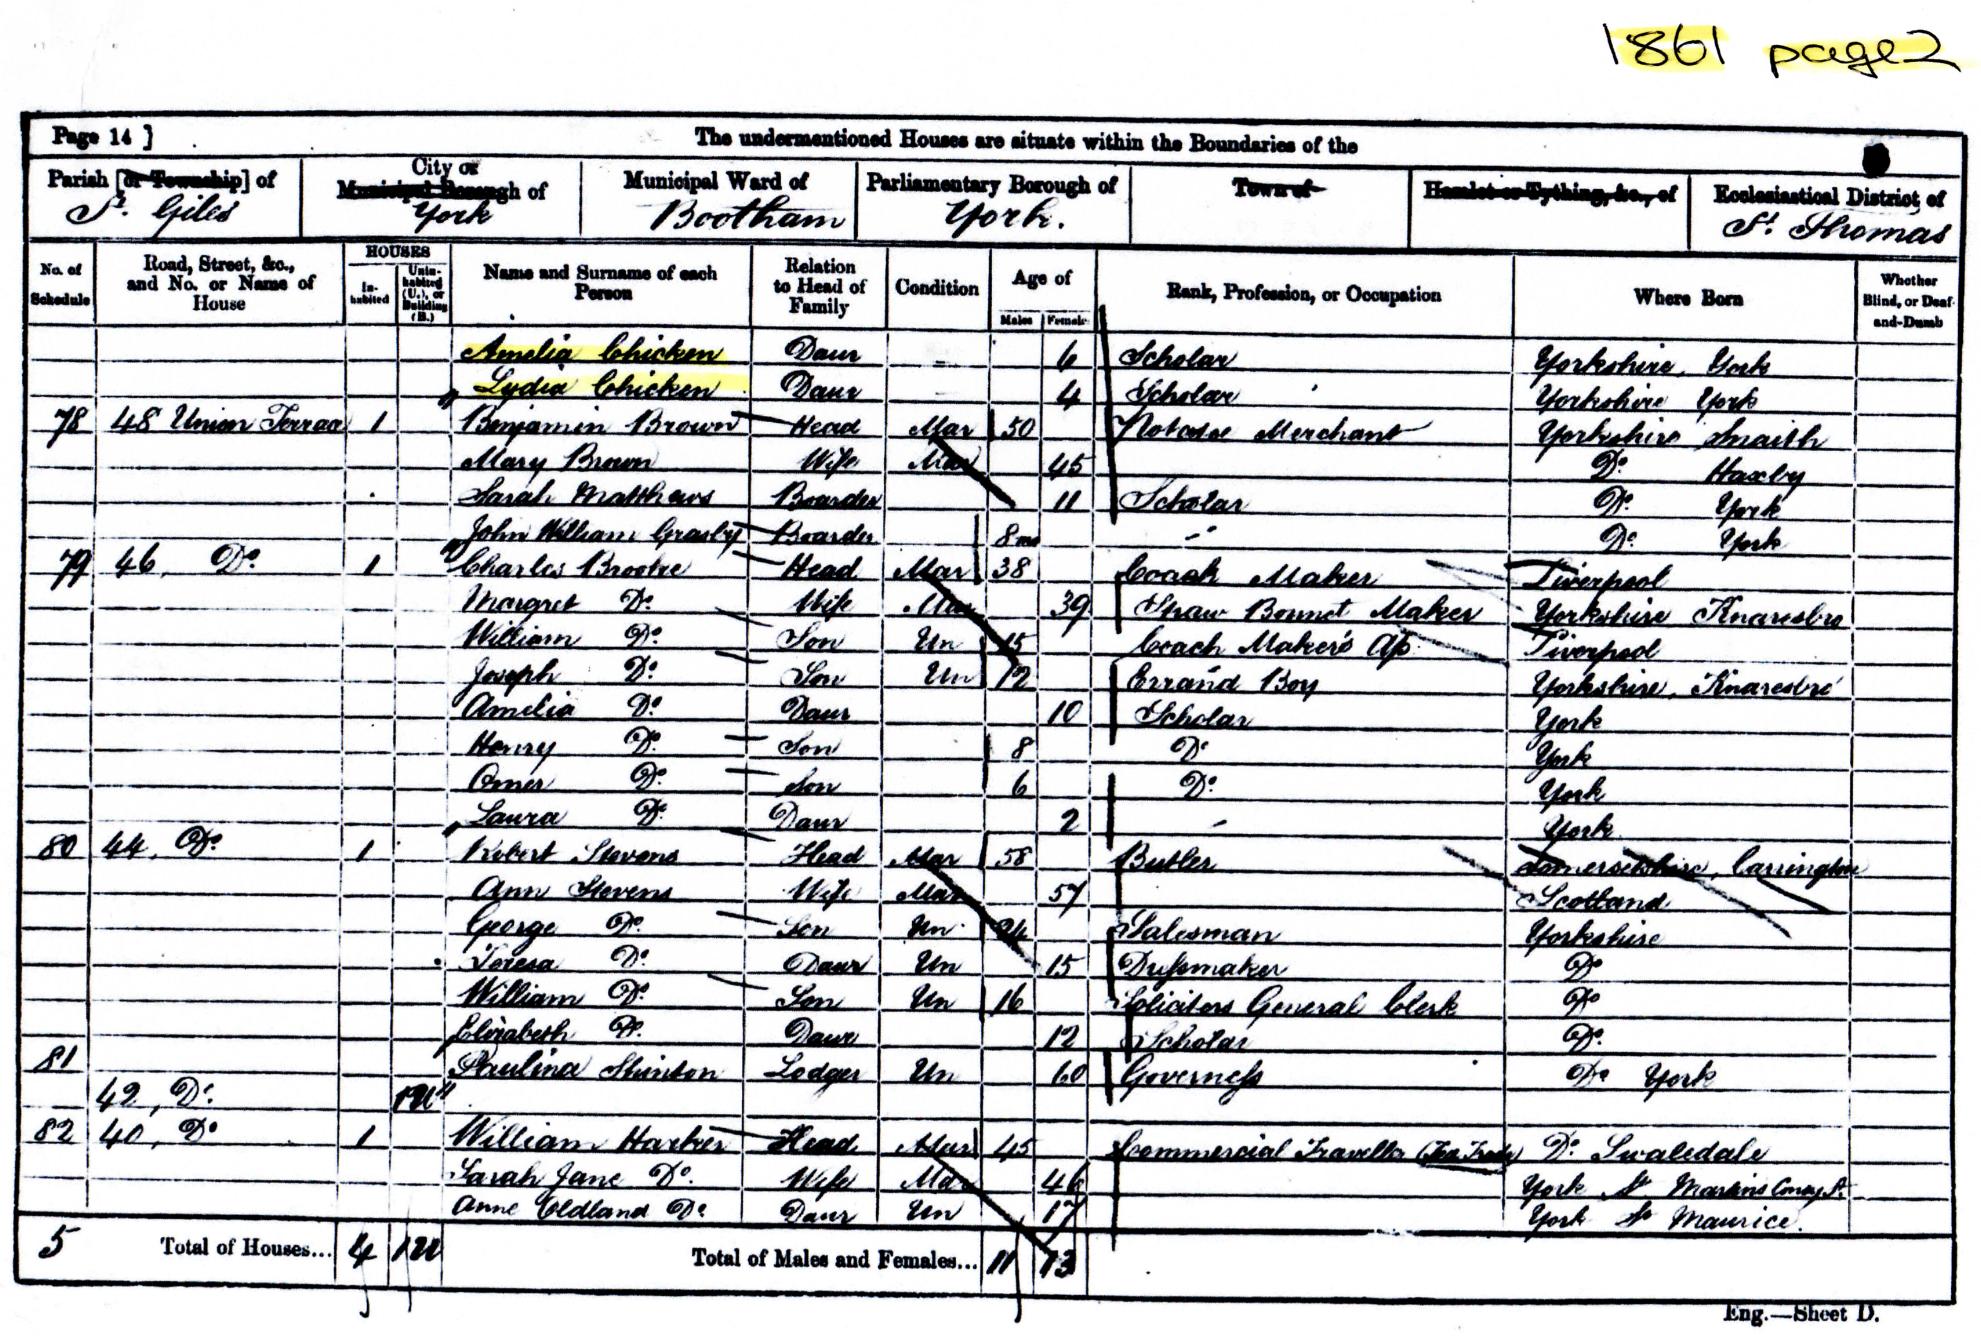 1861 page 2
Page 14 ]
The undermentioned Houses are situate within the Boundaries of the
Parish [or Township] of
St. Giles
City or
Municipal Borough of
York
Municipal Ward of
Bootham
Parliamentary Borough of
York.
Town of
Hamlet or Tything, &c., of
Ecclesiastical District of
St. Thomas
No. of Schedule
Road, Street, &c., and No. or Name of House
HOUSES
In-habited
Unin-habited (U.), or Building (B.)
Name and Surname of each Person
Relation to Head of Family
Condition
Age of
Males
Females
Rank, Profession, or Occupation
Where Born
Whether Blind, or Deaf-and-Dumb
Amelia Chicken Daur 6 Scholar Yorkshire, York
Lydia Chicken Daur 4 Scholar Yorkshire York
78 48 Union Terrace 1 Benjamin Brown Head Mar 50 Merchant Yorkshire Snaith
Mary Brown Wife Mar 45 Do. Haxby
Sarah Matthews Boarder 11 Scholar Do. York
John William Grasby Boarder 8 mo Do. York
79 46, Do. 1 Charles Brooke Head Mar 38 Coach Maker Liverpool
Margret Do. Wife Mar 39 Straw Bonnet Maker Yorkshire Knaresbro
William Do. Son Un 15 Coach Maker's Ap. Liverpool
Joseph Do. Son Un 12 Errand Boy Yorkshire, Knaresbro'
Amelia Do. Daur 10 Scholar York
Henry Do. Son 8 Do. York
Omer Do. Son 6 Do. York
Laura Do. Daur 2 York
80 44, Do. 1 Robert Stevens Head Mar 58 Butler Somersetshire, Carrington
Ann Stevens Wife Mar 57 Scotland
George Do. Son Un 24 Salesman Yorkshire
Teresa Do. Daur Un 15 Dressmaker Do.
William Do. Son Un 16 Solicitors General Clerk Do.
Elizabeth Do. Daur 12 Scholar Do.
81 Paulina Stinton Lodger Un 60 Governess Do. York
42, Do. 1U
82 40, Do. 1 William Harker Head Mar 45 Commercial Traveller (Tea Trade) Do. Swaledale
Sarah Jane Do. Wife Mar 46 York St Martins Coney St.
Anne Eldland Do. Daur Un 17 York St Maurice.
5 Total of Houses... 4 1U Total of Males and Females... 11 13
Eng.—Sheet D.